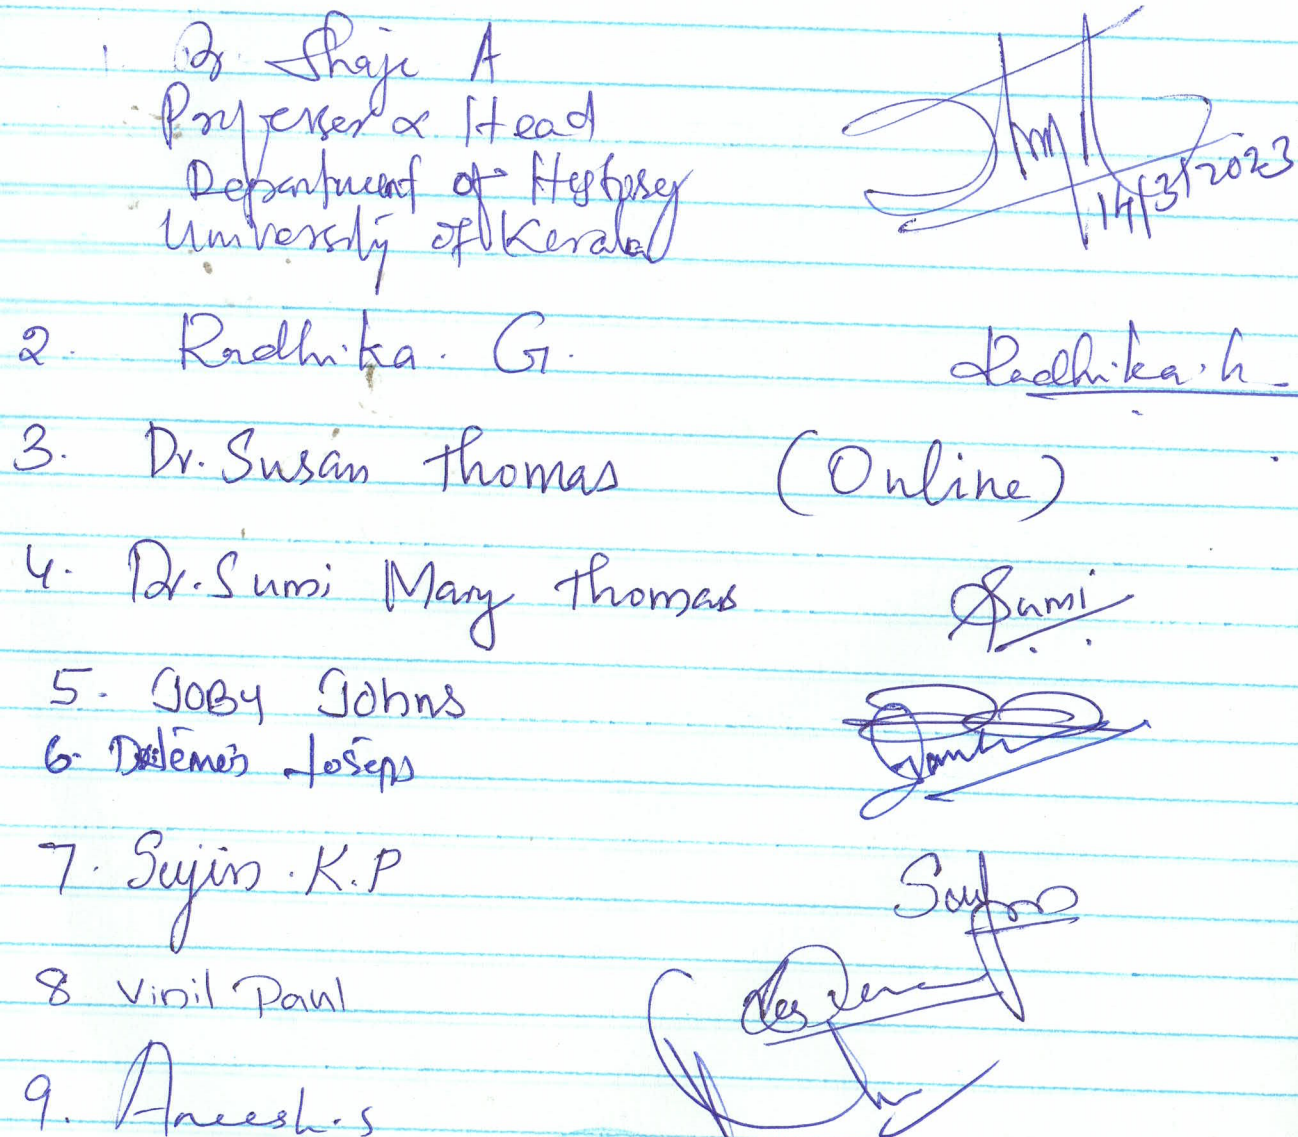 1. Dr Shaji A
Professor & Head
Department of History
University of Kerala
14/3/2023
2. Radhika. G. Radhika. G
3. Dr. Susan Thomas (Online)
4. Dr. Sumi Mary Thomas Sumi
5. JOBY Johns
6. Joseps
7. Sujin. K.P
8 Vinil Paul
9. Aneesh. S